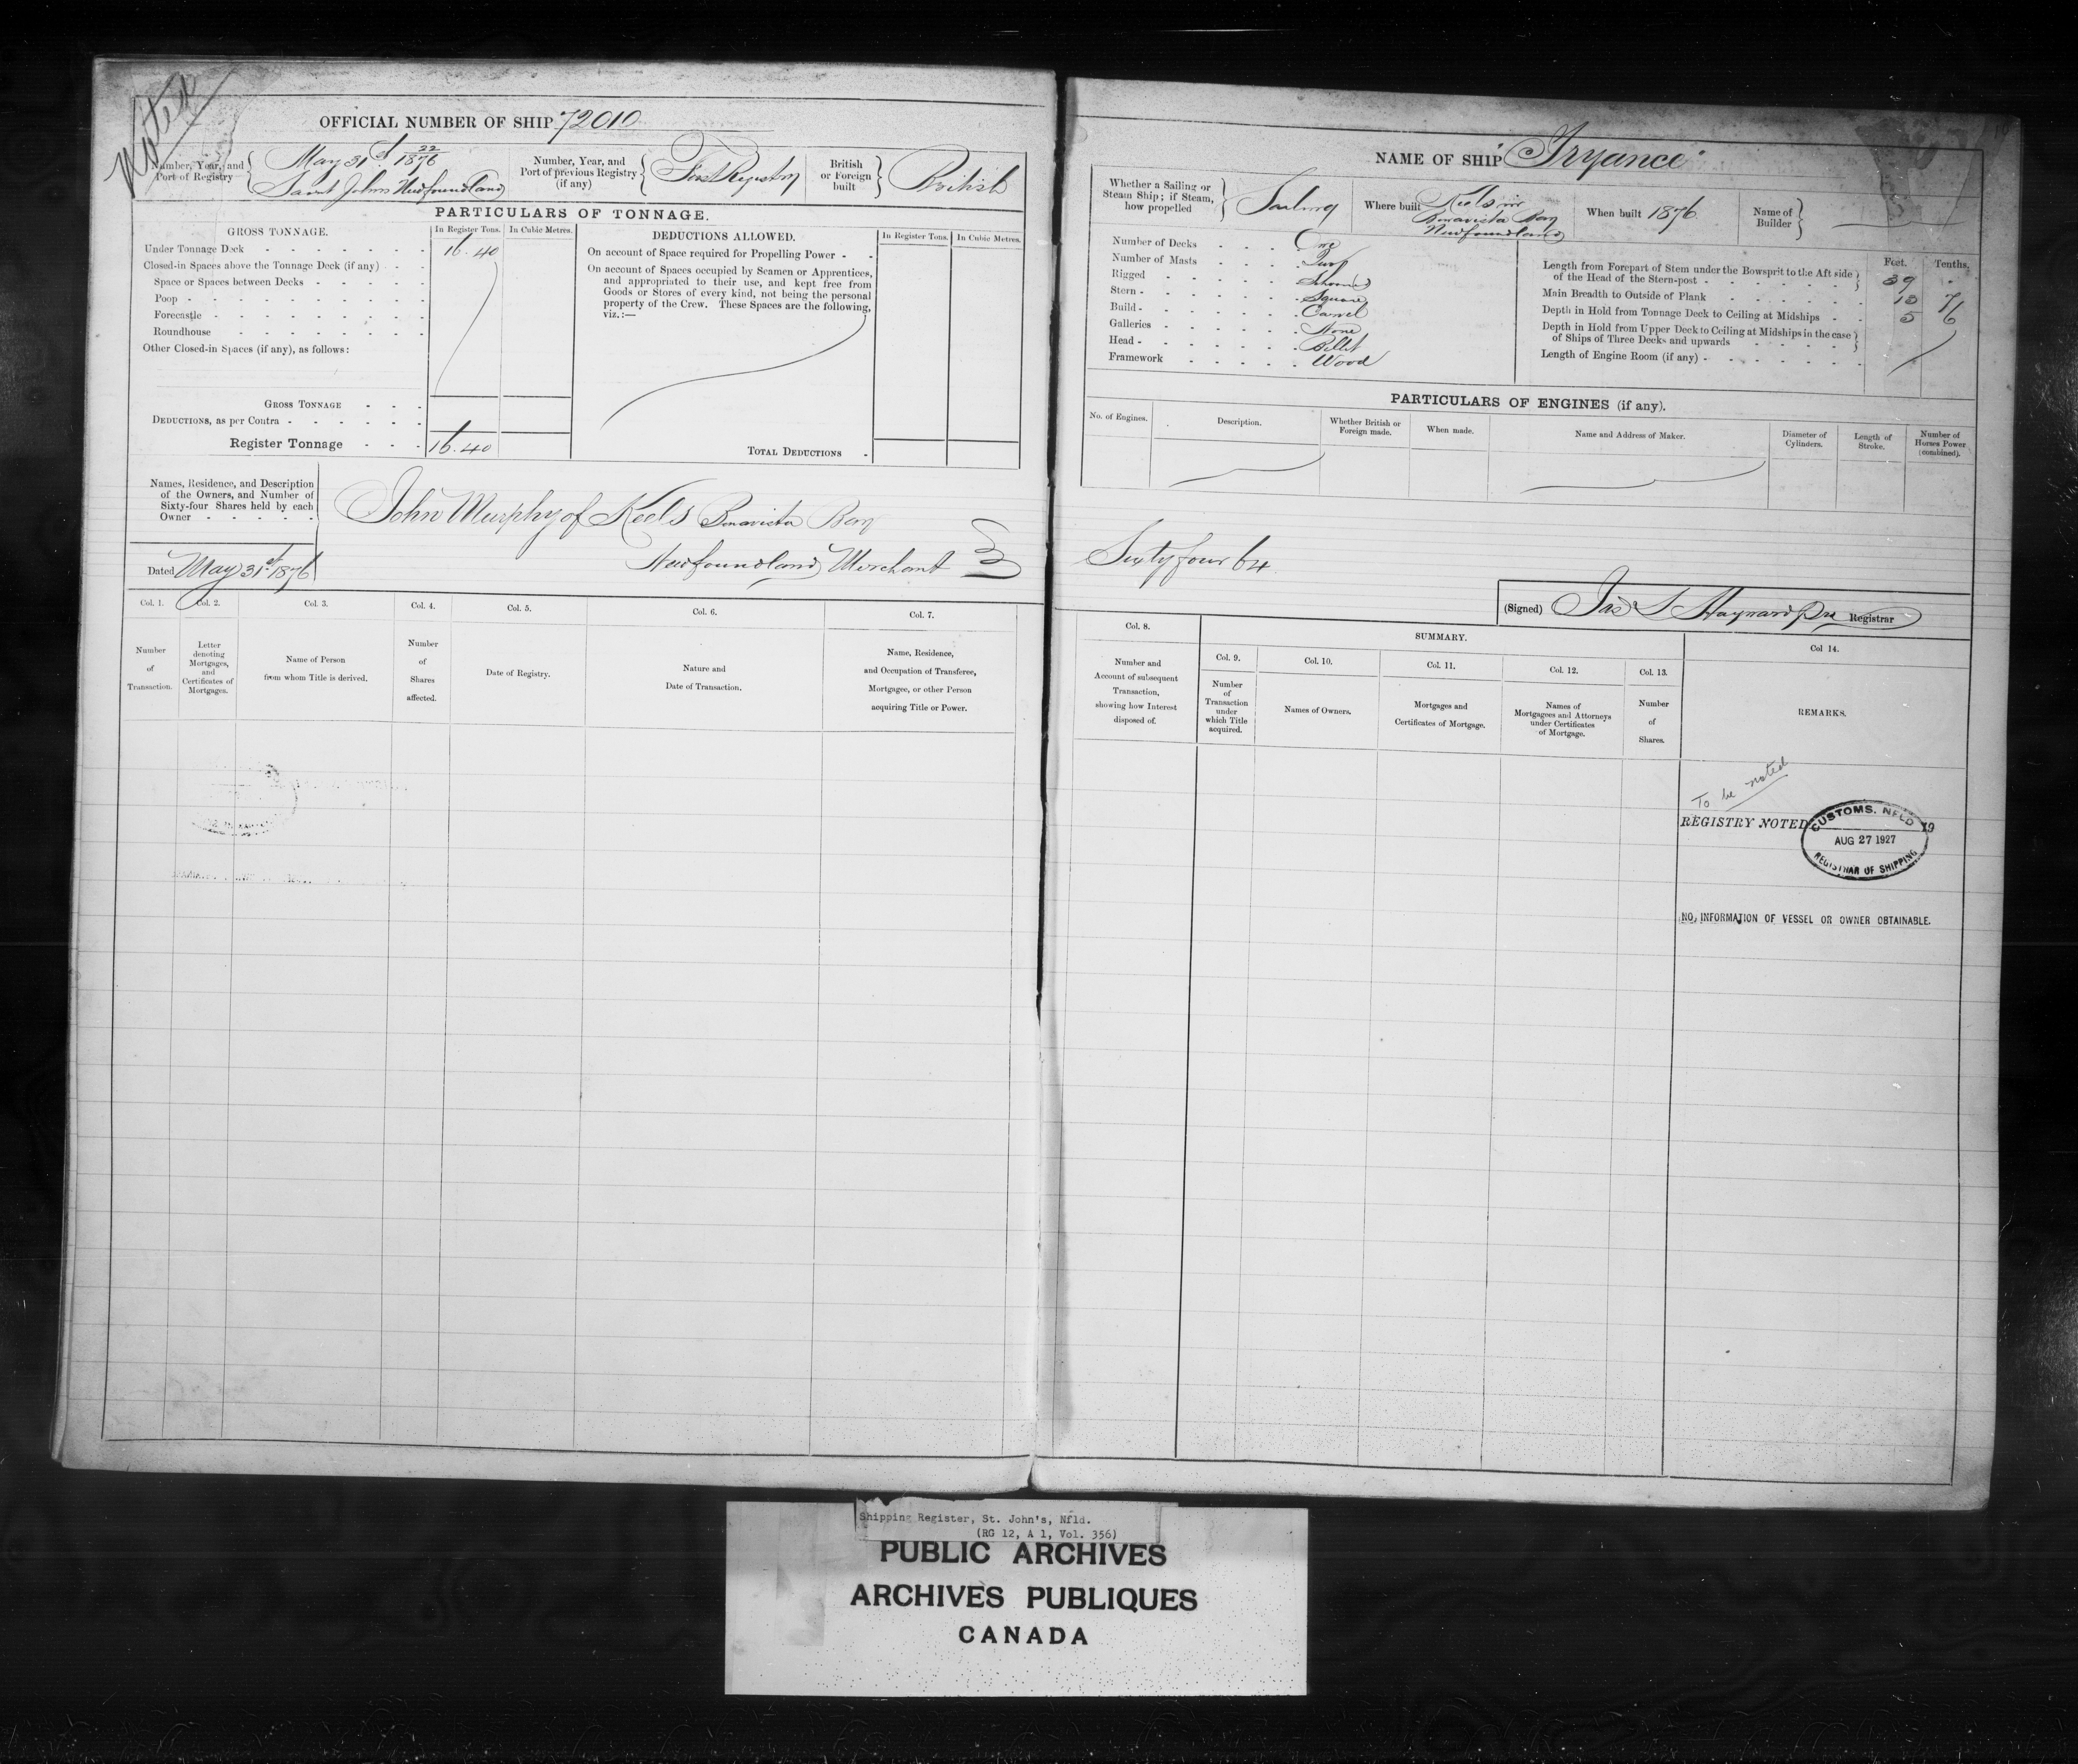 Noted
OFFICIAL NUMBER OF SHIP 72010
Number, Year, and Port of Registry
May 31st 22/1876
Saint Johns Newfoundland
Number, Year, and Port of previous Registry (if any)
First Registry
British or Foreign built
British
PARTICULARS OF TONNAGE.
GROSS TONNAGE.
In Register Tons.
In Cubic Metres.
Under Tonnage Deck 16.40
Closed-in Spaces above the Tonnage Deck (if any)
Space or Spaces between Decks
Poop
Forecastle
Roundhouse
Other Closed-in Spaces (if any), as follows:
GROSS TONNAGE
DEDUCTIONS, as per Contra
Register Tonnage 16.40
DEDUCTIONS ALLOWED.
In Register Tons.
In Cubic Metres.
On account of Space required for Propelling Power
On account of Spaces occupied by Seamen or Apprentices,
and appropriated to their use, and kept free from
Goods or Stores of every kind, not being the personal
property of the Crew. These Spaces are the following,
viz.:—
TOTAL DEDUCTIONS
Names, Residence, and Description
of the Owners, and Number of
Sixty-four Shares held by each
Owner
John Murphy of Keels Bonavista Bay
Newfoundland Merchant
Dated May 31st 1876
Col. 1.
Number
of
Transaction.
Col. 2.
Letter
denoting
Mortgages,
and
Certificates of
Mortgages.
Col. 3.
Name of Person
from whom Title is derived.
Col. 4.
Number
of
Shares
affected.
Col. 5.
Date of Registry.
Col. 6.
Nature and
Date of Transaction.
Col. 7.
Name, Residence,
and Occupation of Transferee,
Mortgagee, or other Person
acquiring Title or Power.
NAME OF SHIP "Tryance"
Whether a Sailing or
Steam Ship; if Steam,
how propelled
Sailing
Where built
Keels in
Bonavista Bay
Newfoundland
When built 1876
Name of
Builder
Number of Decks One
Number of Masts Two
Rigged Schooner
Stern Square
Build Carvel
Galleries None
Head Billet
Framework Wood
Feet. Tenths.
Length from Forepart of Stem under the Bowsprit to the Aft side
of the Head of the Stern-post 39 "
Main Breadth to Outside of Plank 13 7
Depth in Hold from Tonnage Deck to Ceiling at Midships 5 6
Depth in Hold from Upper Deck to Ceiling at Midships in the case
of Ships of Three Decks and upwards
Length of Engine Room (if any)
PARTICULARS OF ENGINES (if any).
No. of Engines.
Description.
Whether British or
Foreign made.
When made.
Name and Address of Maker.
Diameter of
Cylinders.
Length of
Stroke.
Number of
Horses Power
(combined).
Sixty four 64
(Signed) Jas S Hayward Registrar
Col. 8.
Number and
Account of subsequent
Transaction,
showing how Interest
disposed of.
SUMMARY.
Col. 9.
Number
of
Transaction
under
which Title
acquired.
Col. 10.
Names of Owners.
Col. 11.
Mortgages and
Certificates of Mortgage.
Col. 12.
Names of
Mortgagees and Attorneys
under Certificates
of Mortgage.
Col. 13.
Number
of
Shares.
Col 14.
REMARKS.
To be noted
REGISTRY NOTED 19
CUSTOMS. NFLD
AUG 27 1927
REGISTRAR OF SHIPPING
NO, INFORMATION OF VESSEL OR OWNER OBTAINABLE.
Shipping Register, St. John's, Nfld.
(RG 12, A 1, Vol. 356)
PUBLIC ARCHIVES
ARCHIVES PUBLIQUES
CANADA